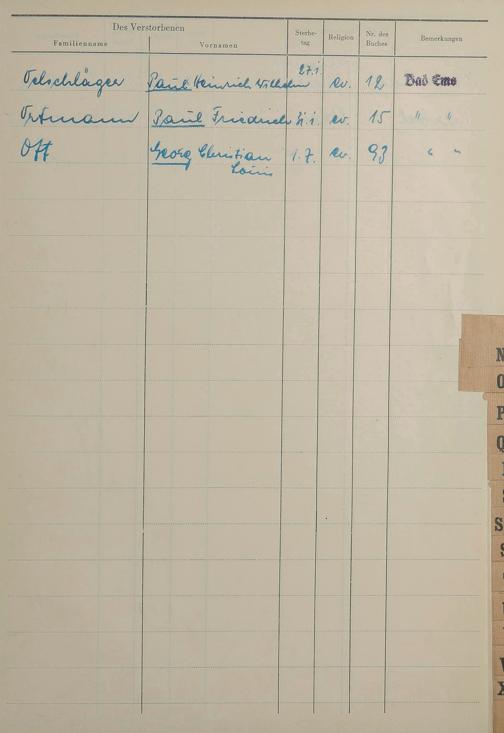 Des Verstorbenen
Familienname Vornamen Sterbe-tag Religion Nr. des Buches Bemerkungen
Oelschläger Paul Heinrich Wilhelm 27.1. ev. 12 Bad Ems
Ortmann Paul Friedrich 31.1. ev. 15 " "
Ott Georg Christian 1.7. ev. 93 " "
Louis
N
O
P
Q
S
S
V
X